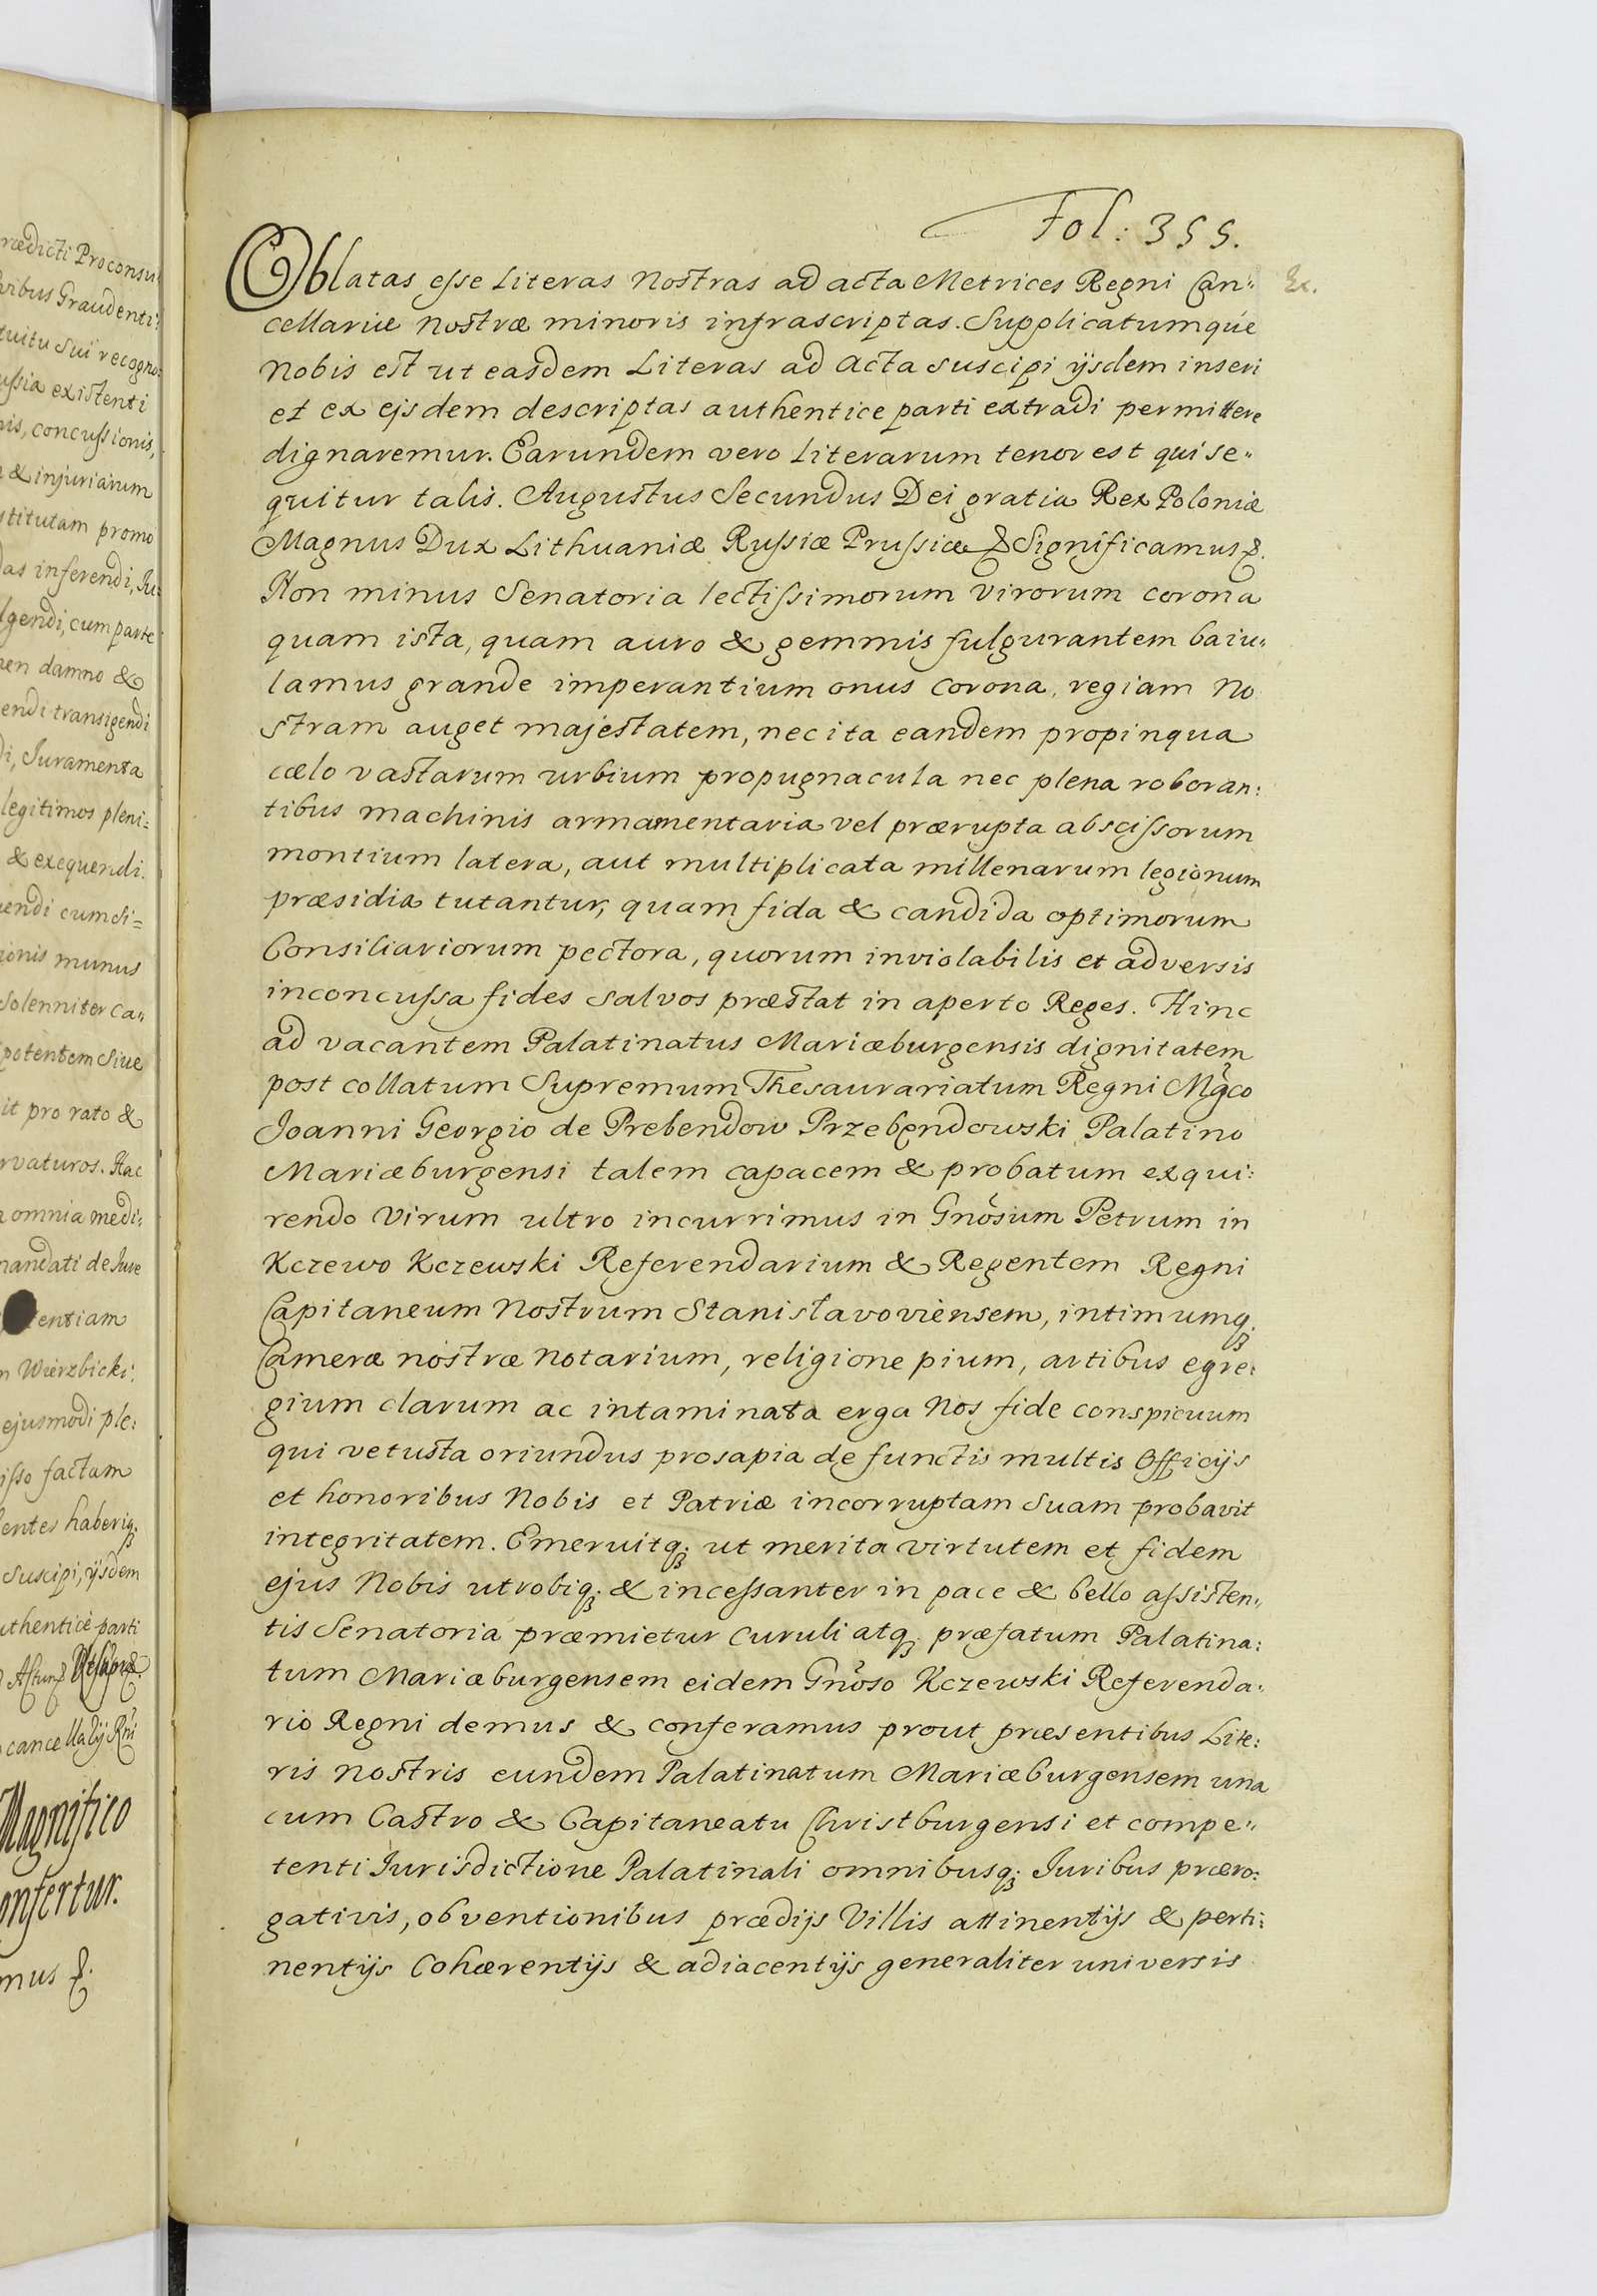 rædicti Proconsu
ribus Graudenti
tuitu Sui recogno:
ussia existenti
nis, concussionis,
& injuriarum
stitutam promo
das inferendi, Ju:
lgendi, cum parte
men damno &
endi transigendi
di, Juramenta
legitimos pleni=
& exequendi.
uendi cum Si=
ionis munus
Solenniter ca„
potentem Sive
it pro rato &
rvaturos. Hac
a omnia medi:
mandati de Jure
tentiam
m Wierzbicki
ejusmodi ple:
isso factam
entes haberiq;
Suscipi, ijsdem
uthentice parti
Actum Ut supra
cancellarij Rni
Magnifico
onfertur.
mus &.
Fol: 355.
Oblatas esse Literas Nostras ad acta Metrices Regni Can„ &c.
cellariæ nostræ minoris infrascriptas. Supplicatumque
Nobis est ut easdem Literas ad acta suscipi ijsdem inseri
et ex ejsdem descriptas authentice parti extradi permittere
dignaremur. Earundem vero Literarum tenor est qui se„
quitur talis. Augustus Secundus Dei gratia Rex Poloniæ
Magnus Dux Lithuaniæ Russiæ Prussiæ & Significamus &.
Non minus Senatoria lectissimorum virorum corona
quam ista, quam auro & gemmis fulgurantem baiu„
lamus grande imperantium onus corona, regiam No
stram auget majestatem, nec ita eandem propinqua
cælo vastarum urbium propugnacula nec plena roboran:
tibus machinis armamentaria vel prærupta abscissorum
montium latera, aut multiplicata millenarum legionum
præsidia tutantur, quam fida & candida optimorum
Consiliariorum pectora, quorum inviolabilis et adversis
inconcussa fides salvos præstat in aperto Reges. Hinc
ad vacantem Palatinatus Mariæburgensis dignitatem
post collatum Supremum Thesaurariatum Regni Mgco
Joanni Georgio de Prebendow Przebendowski Palatino
Mariæburgensi talem capacem & probatum exqui:
rendo virum ultro incurrimus in Gnosum Petrum in
Kczewo Kczewski Referendarium & Regentem Regni
Capitaneum Nostrum Stanislavoviensem, intimumq;
Cameræ nostræ Notarium, religione pium, artibus egre:
gium clarum ac intaminata erga Nos fide conspicuum
qui vetusta oriundus prosapia de functis multis Officijs
et honoribus Nobis et Patriæ incorruptam suam probavit
integritatem. Emeruitq; ut merita virtutem et fidem
ejus Nobis utrobiq; & incessanter in pace & bello assisten„
tis Senatoria præmietur curuli atq; præfatum Palatina:
tum Mariæburgensem eidem Gnoso Kczewski Referenda:
rio Regni demus & conferamus prout præsentibus Lite:
ris nostris eundem Palatinatum Mariæburgensem una
cum Castro & Capitaneatu Christburgensi et compe„
tenti Jurisdictione Palatinali omnibusq; Juribus præro:
gativis, obventionibus prædijs Villis attinentijs & perti:
nentijs Cohærentijs & adiacentijs generaliter universis